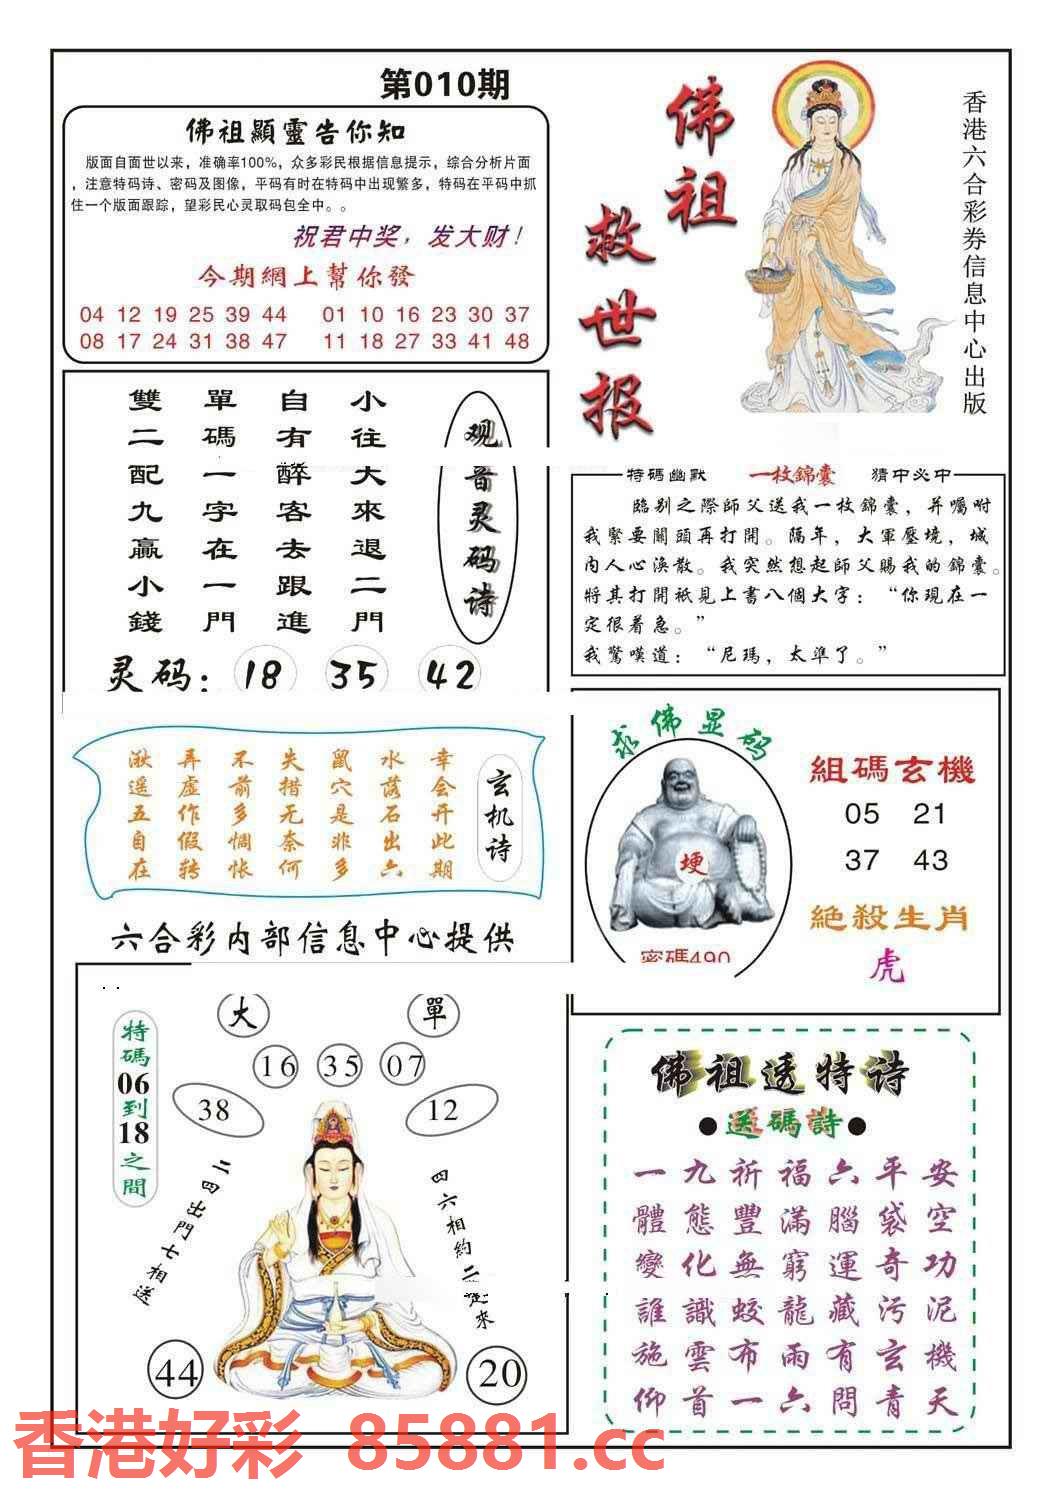 第010期
佛祖顯靈告你知
版面自面世以来，准确率100%，众多彩民根据信息提示，综合分析片面
，注意特码诗、密码及图像，平码有时在特码中出现繁多，特码在平码中抓
住一个版面跟踪，望彩民心灵取码包全中。。
祝君中奖，发大财！
今期網上幫你發
04 12 19 25 39 44 01 10 16 23 30 37
08 17 24 31 38 47 11 18 27 33 41 48
佛祖
救世报
香港六合彩券信息中心出版
观音灵码诗
小往大來退二門
自有醉客去跟進
單碼一字在一門
雙二配九贏小錢
灵码：18 35 42
特碼幽默 一枚錦囊 猜中必中
臨别之際師父送我一枚錦囊，并囑咐
我緊要關頭再打開。隔年，大軍壓境，城
内人心渙散。我突然想起師父賜我的錦囊。
將其打開祇見上書八個大字：“你現在一
定很着急。”
我驚嘆道：“尼瑪，太準了。”
玄机诗
幸会开此期
水落石出六
鼠穴是非多
失措无奈何
不前多惆怅
弄虚作假转
湫遥五自在
求佛显码
埂
密碼490
組碼玄機
05 21
37 43
絕殺生肖
虎
六合彩内部信息中心提供
大 單
16 35 07
38 12
特碼06到18之間
二四出門七相送
四六相約二起來
44 20
佛祖透特诗
●送碼詩●
一九祈福六平安
體態豐滿腦袋空
變化無窮運奇功
誰識蛟龍藏污泥
施雲布雨有玄機
仰首一六問青天
香港好彩 85881.cc